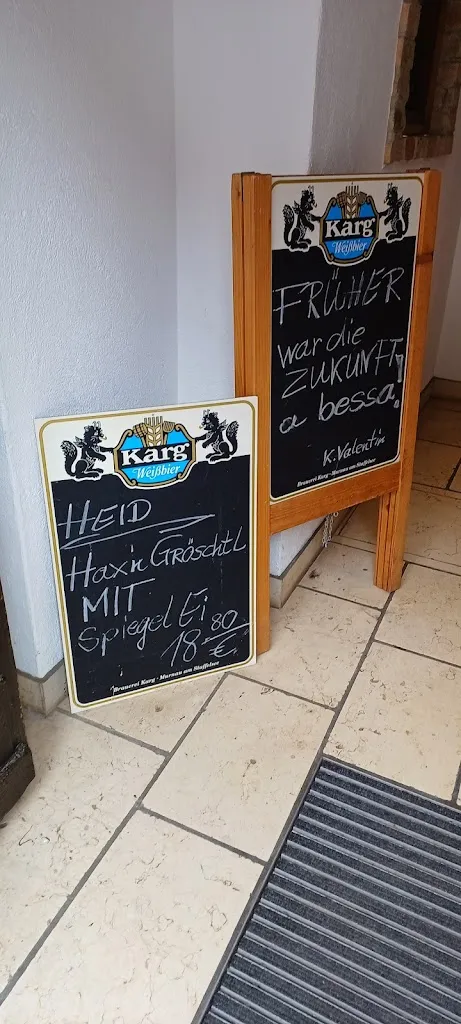 Karg
Weißbier
HEID
Hax'n GRÖSCHTL
MIT
Spiegel Ei
18.80
€
Brauerei Karg · Murnau am Staffelsee
Karg
Weißbier
FRÜHER
war die
ZUKUNFT
a bessa!
K. Valentin
Brauerei Karg · Murnau am Staffelsee